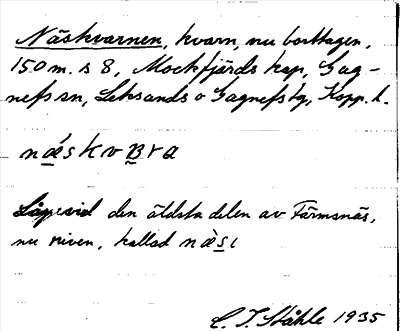 Näskvarnen, kvarn, nu borttagen,
150 m. s 8, Mockfjärds kap, Gag-
nefs sn, Leksands o Gagnefs tg, Kopp. l.
næ´skvBra
Låg vid den äldsta delen av Färmsnäs,
nu riven, kallad næ`sı
C. I. Ståhle 1935